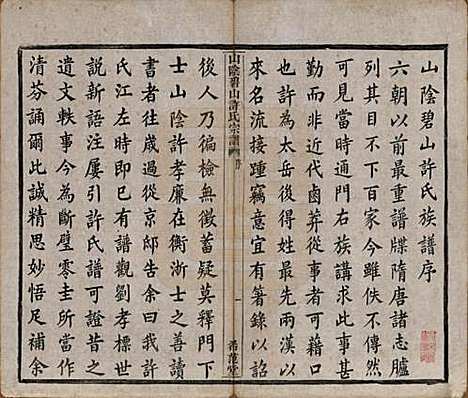 山陰碧山許氏族譜序
六朝以前最重譜牒隋唐諸志臚
列其目不下百家今雖佚不傳然
可見當時通門右族講求此事甚
勤而非近代鹵莽從事者可藉口
也許為太岳後得姓最先兩漢以
來名流接踵竊意宜有箸錄以詔
山陰碧山許氏宗譜
序
一
希范堂
後人乃徧檢無徵蓄疑莫釋門下
士山陰許孝廉在衡浙士之善讀
書者往歲過從京邸告余曰我許
氏江左時即有譜觀劉孝標世
說新語注屢引許氏譜可證昔之
遺文軼事今為斷璧零圭所當作
清芬誦爾比誠精思妙悟足補余